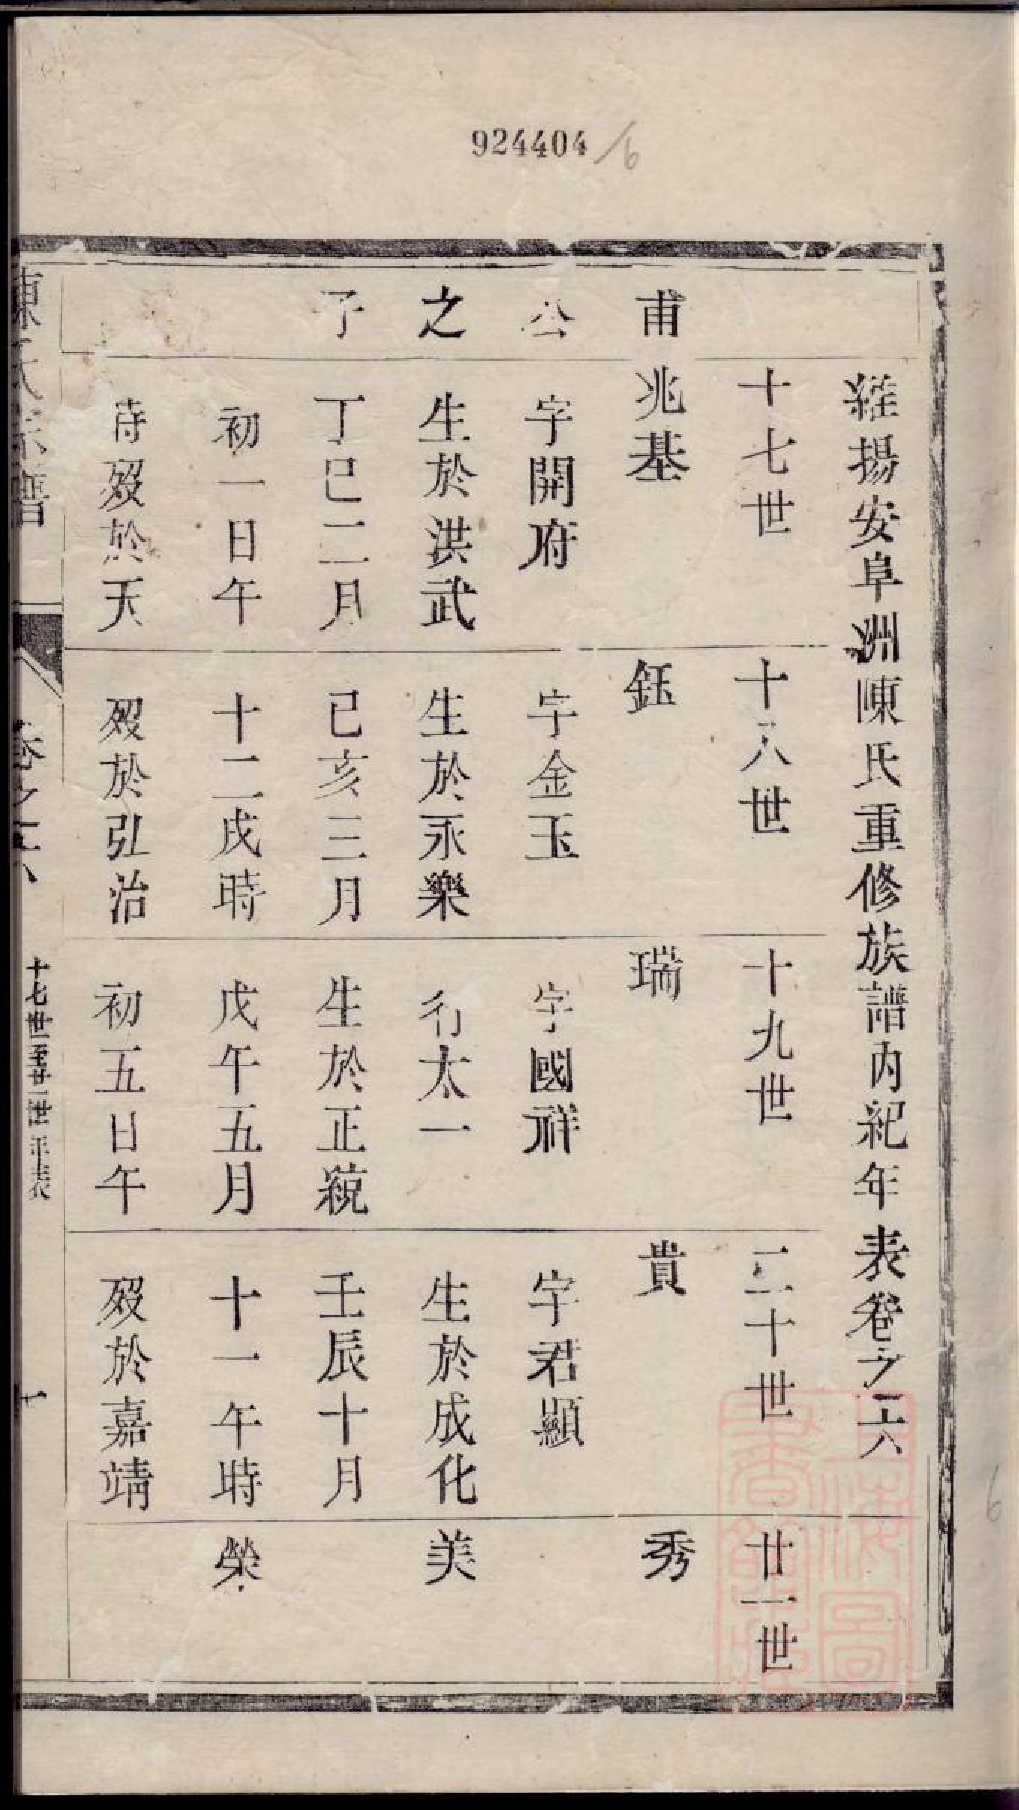 924404/6
維揚安阜洲陳氏重修族譜内紀年表卷之六
十七世
十八世
十九世
二十世
廿一世
甫公之子
兆基
字開府
生於洪武
丁巳二月
初一日午
時歿於天
鈺
字金玉
生於永樂
己亥三月
十二戌時
歿於弘治
瑞
字國祥
行太一
生於正統
戊午五月
初五日午
貴
字君顯
生於成化
壬辰十月
十一午時
歿於嘉靖
秀
美
榮
陳氏宗譜
卷之六
十七世至廿一世年表
一
6
上海圖書館藏